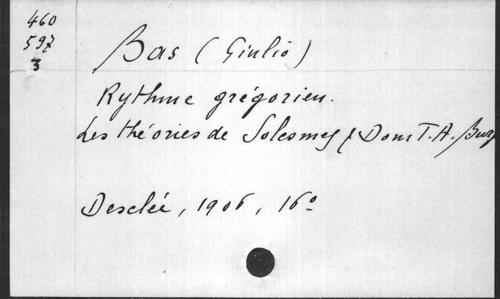 460
597
3
Bas (Giulio)
Rythme grégorien.
Les théories de Solesmes & Dom T.A. Bur
Desclée, 1906, 16º